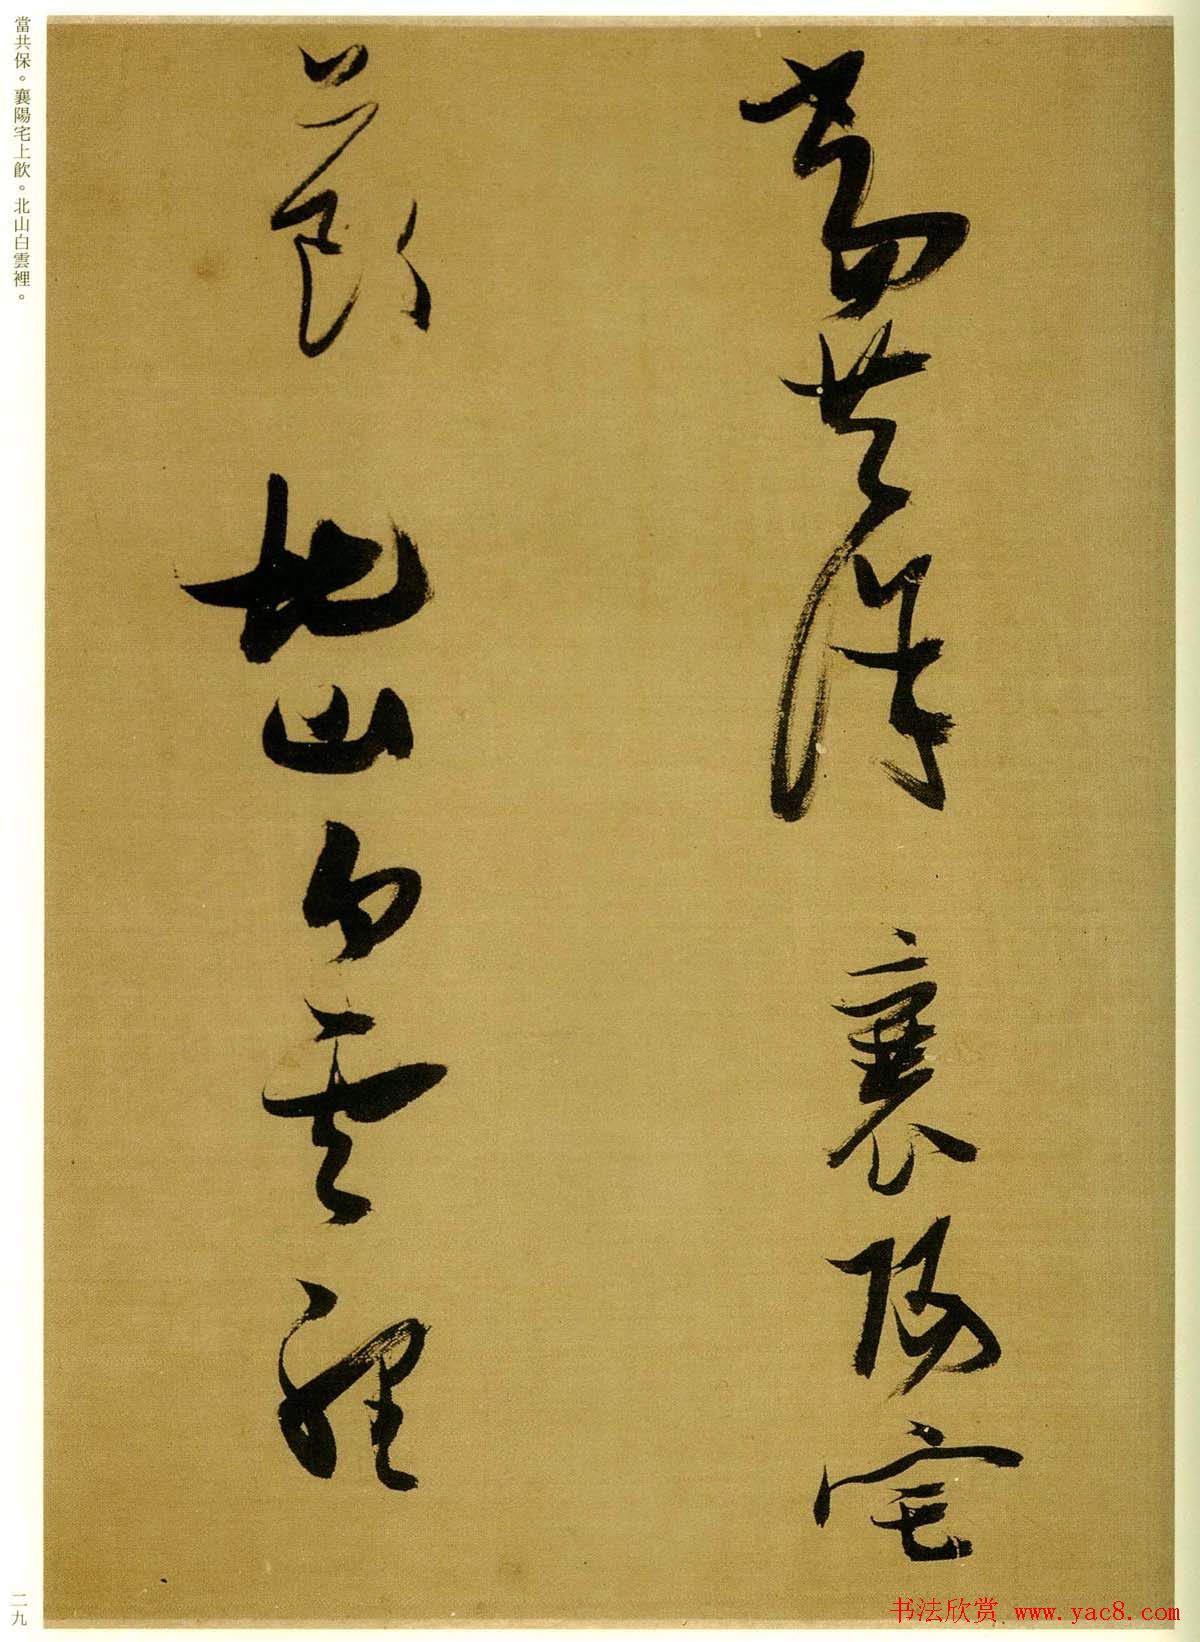 當共保襄陽宅
上飲北山白雲裡
當共保。襄陽宅上飲。北山白雲裡。
二九
书法欣赏 www.yac8.com